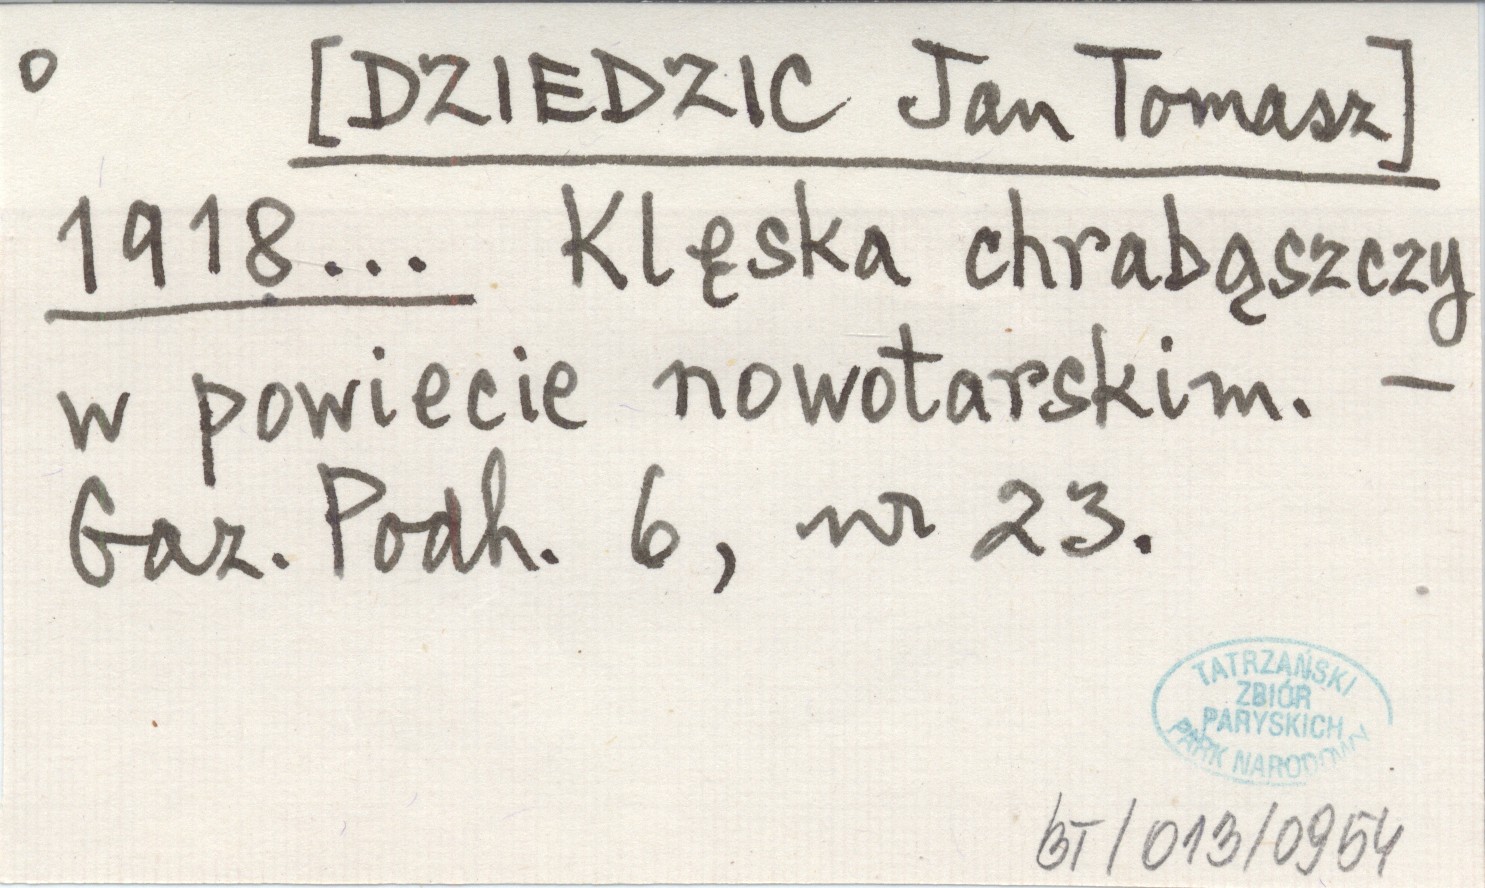 o [DZIEDZIC Jan Tomasz]
1918... Klęska chrabąszczy
w powiecie nowotarskim. –
Gaz. Podh. 6, nr 23.
TATRZAŃSKI
ZBIÓR
PARYSKICH
PARK NARODOWY
BT/013/0954